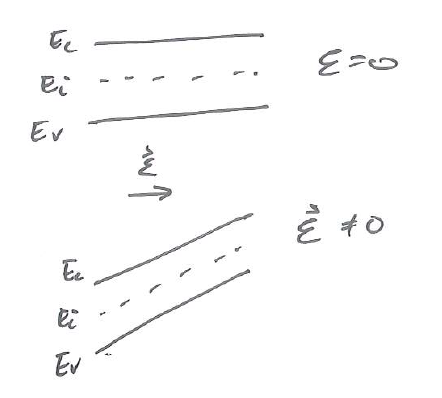 Ec
Ei
ℰ=0
Ev
ℰ⃗
ℰ⃗ ≠0
Ec
Ei
Ev